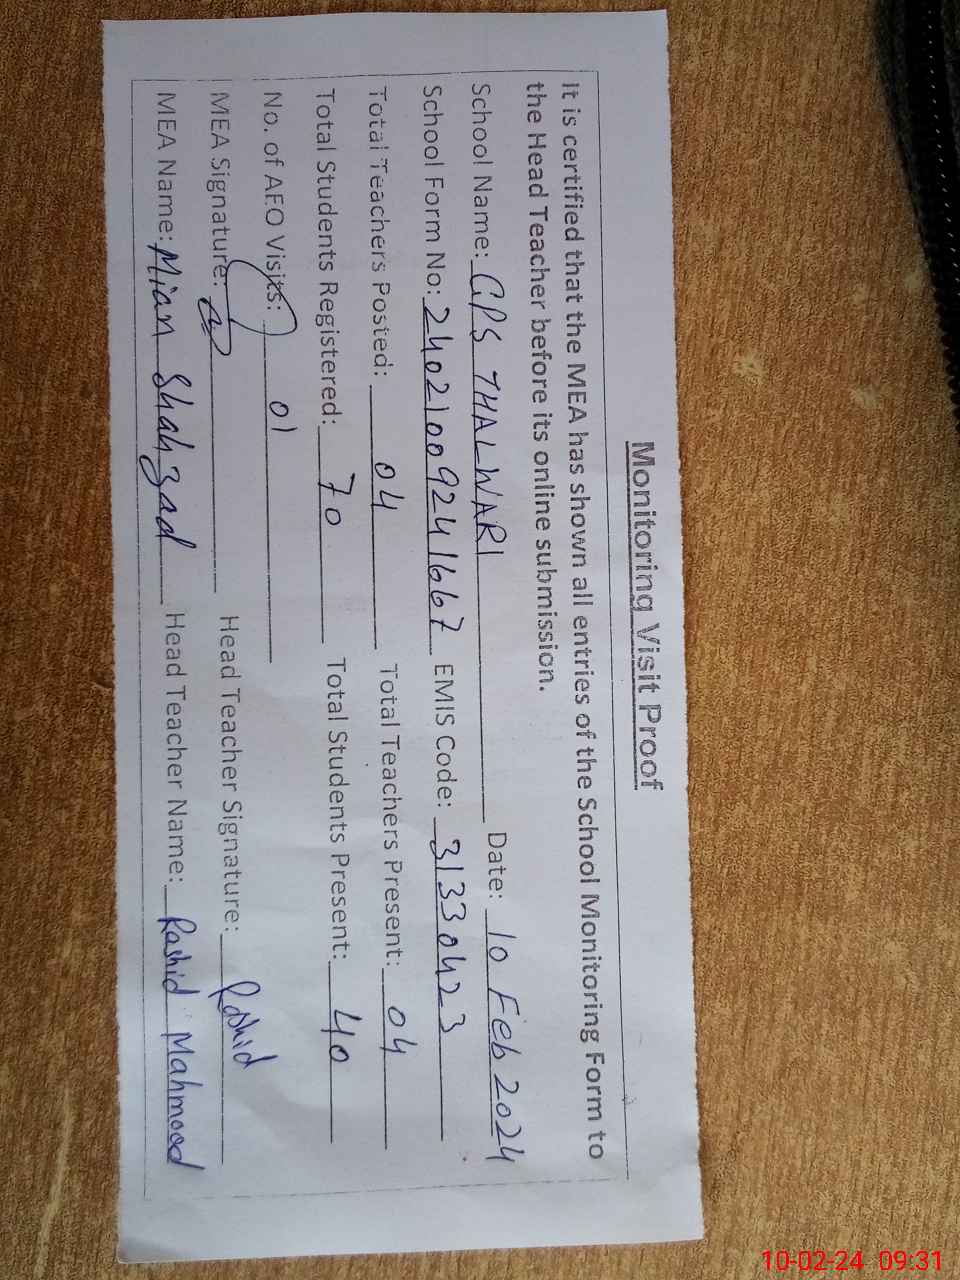 Monitoring Visit Proof
It is certified that the MEA has shown all entries of the School Monitoring Form to
the Head Teacher before its online submission.
School Name: GPS THALWARI Date: 10 Feb 2024
School Form No: 24021009241667 EMIS Code: 31330423
Total Teachers Posted: 04 Total Teachers Present: 04
Total Students Registered: 70 Total Students Present: 40
No. of AEO Visits: 01
MEA Signature: Head Teacher Signature: Rashid
MEA Name: Mian Shahzad Head Teacher Name: Rashid Mahmood
10-02-24 09:31